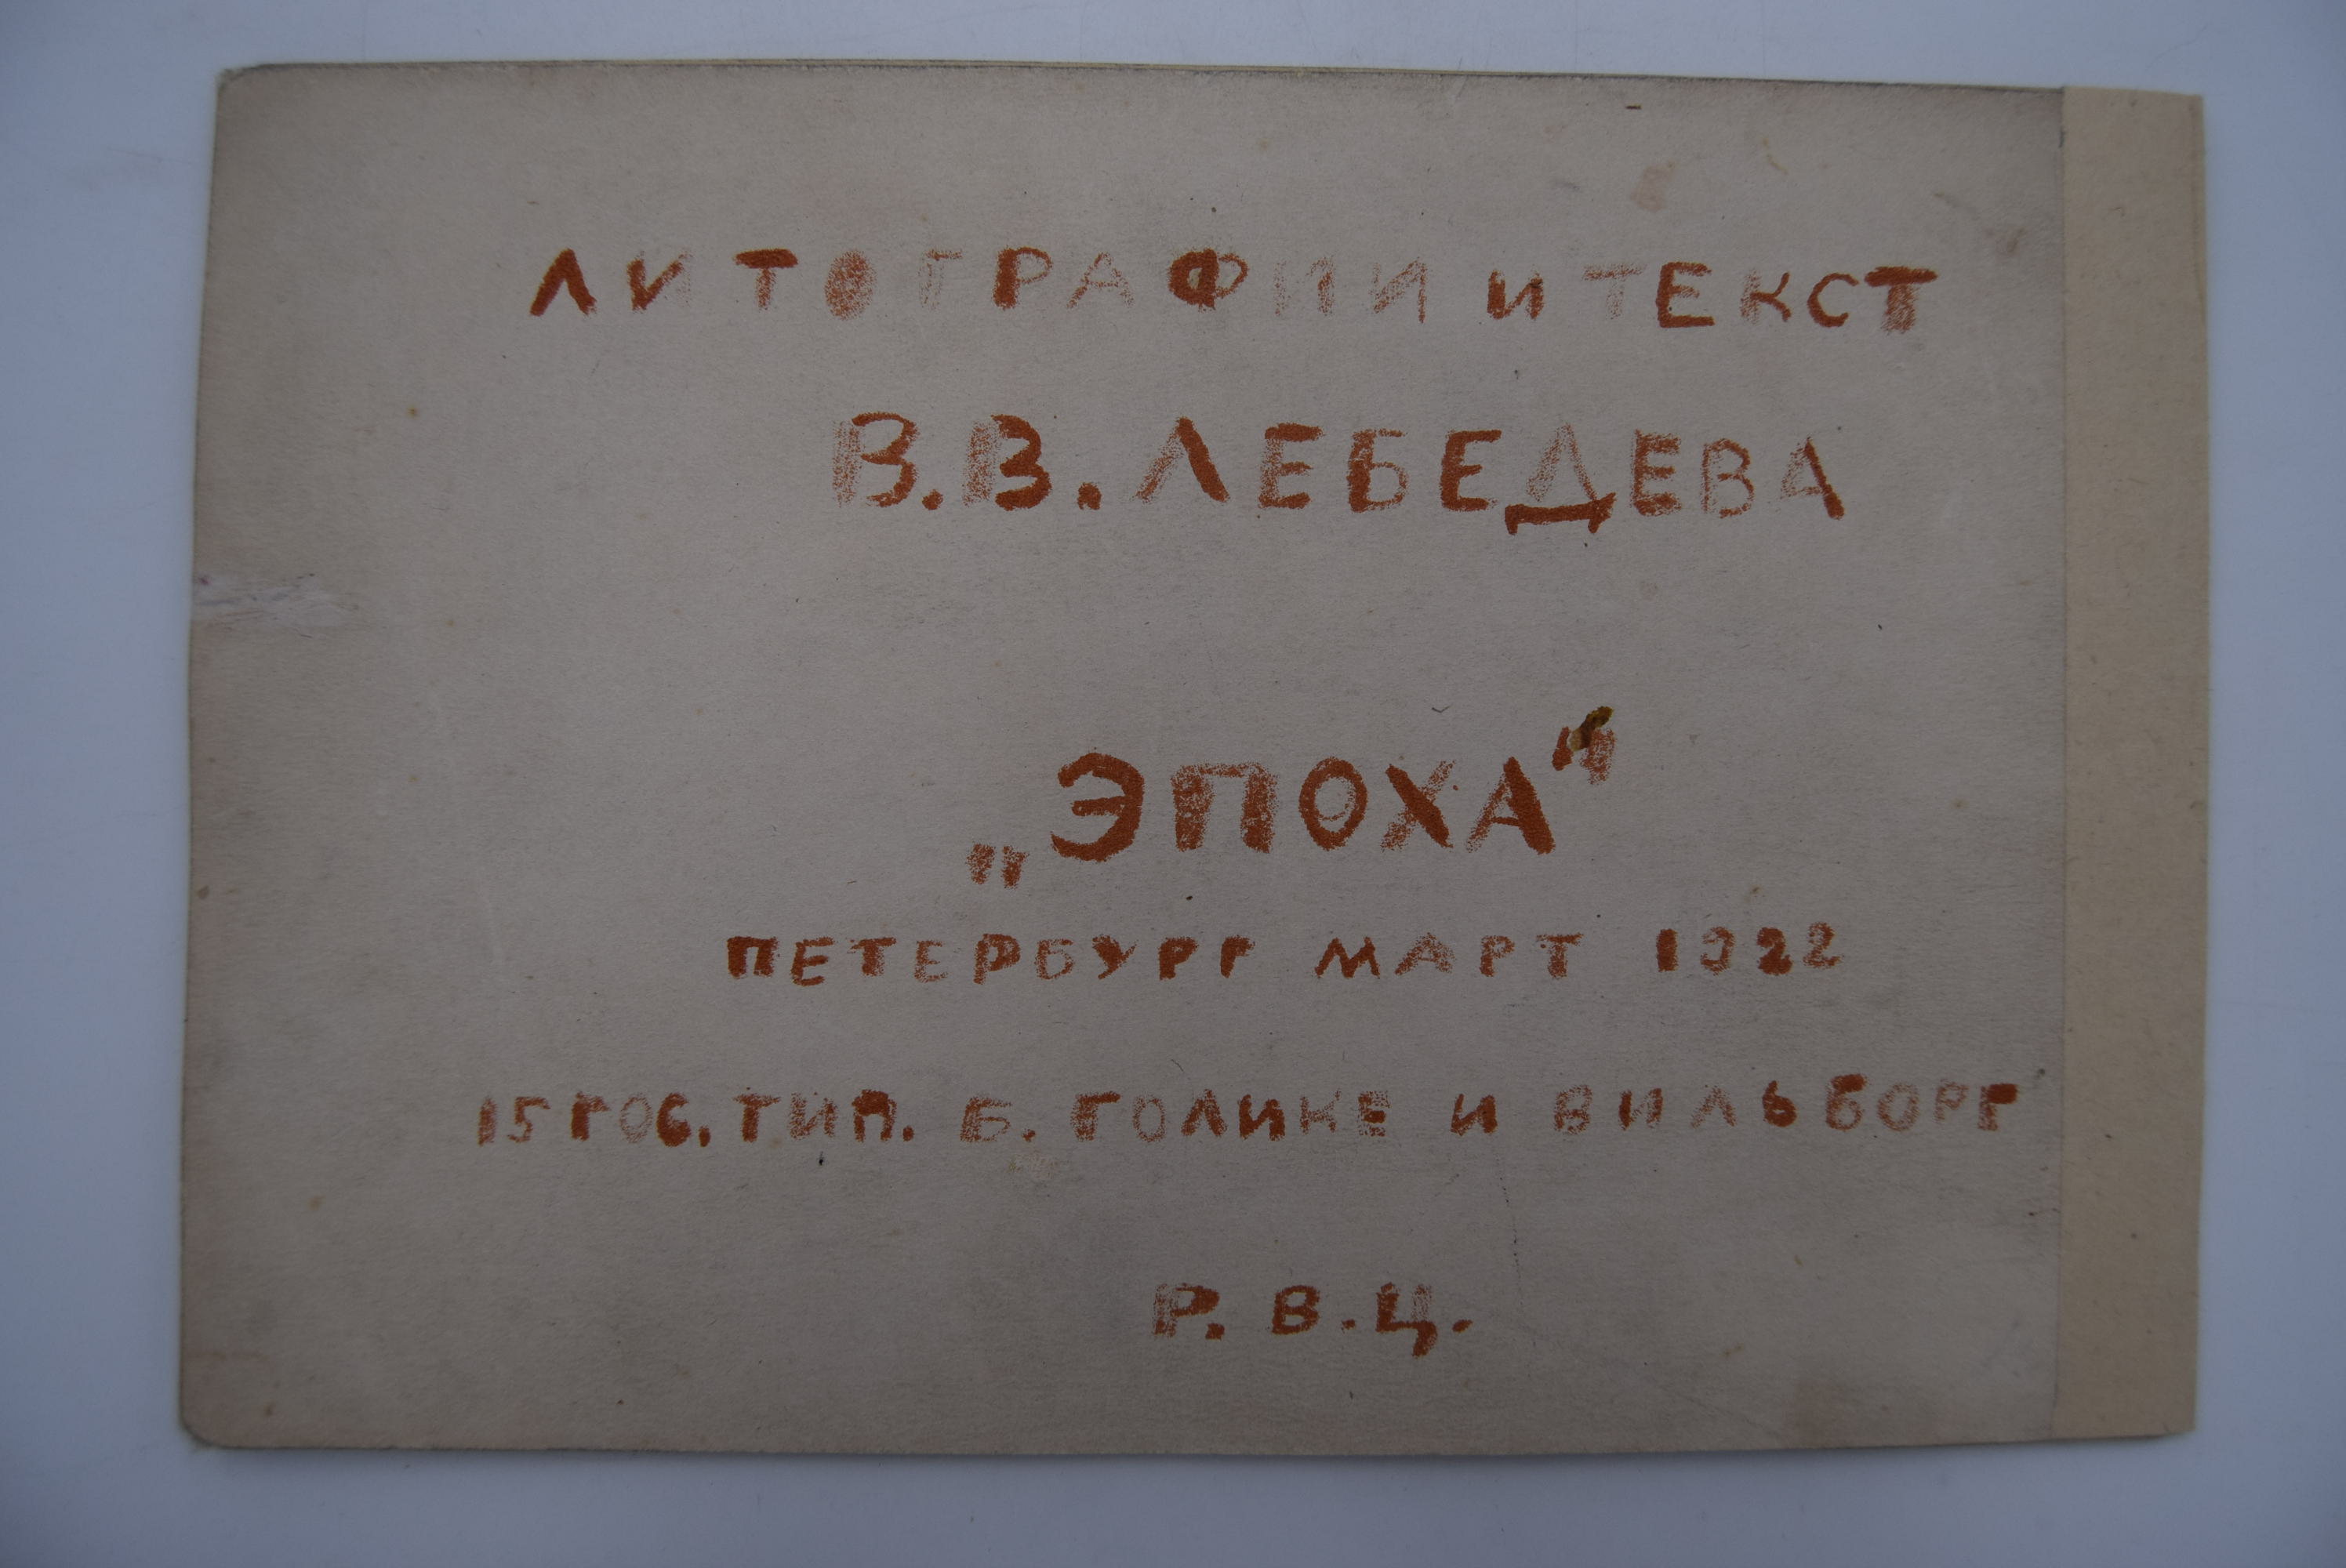 ЛИТОГРАФИИ и ТЕКСТ
В.В. ЛЕБЕДЕВА
„ЭПОХА“
ПЕТЕРБУРГ МАРТ 1922
15 ГОС. ТИП. Б. ГОЛИКЕ И ВИЛЬБОРГ
Р. В. Ц.